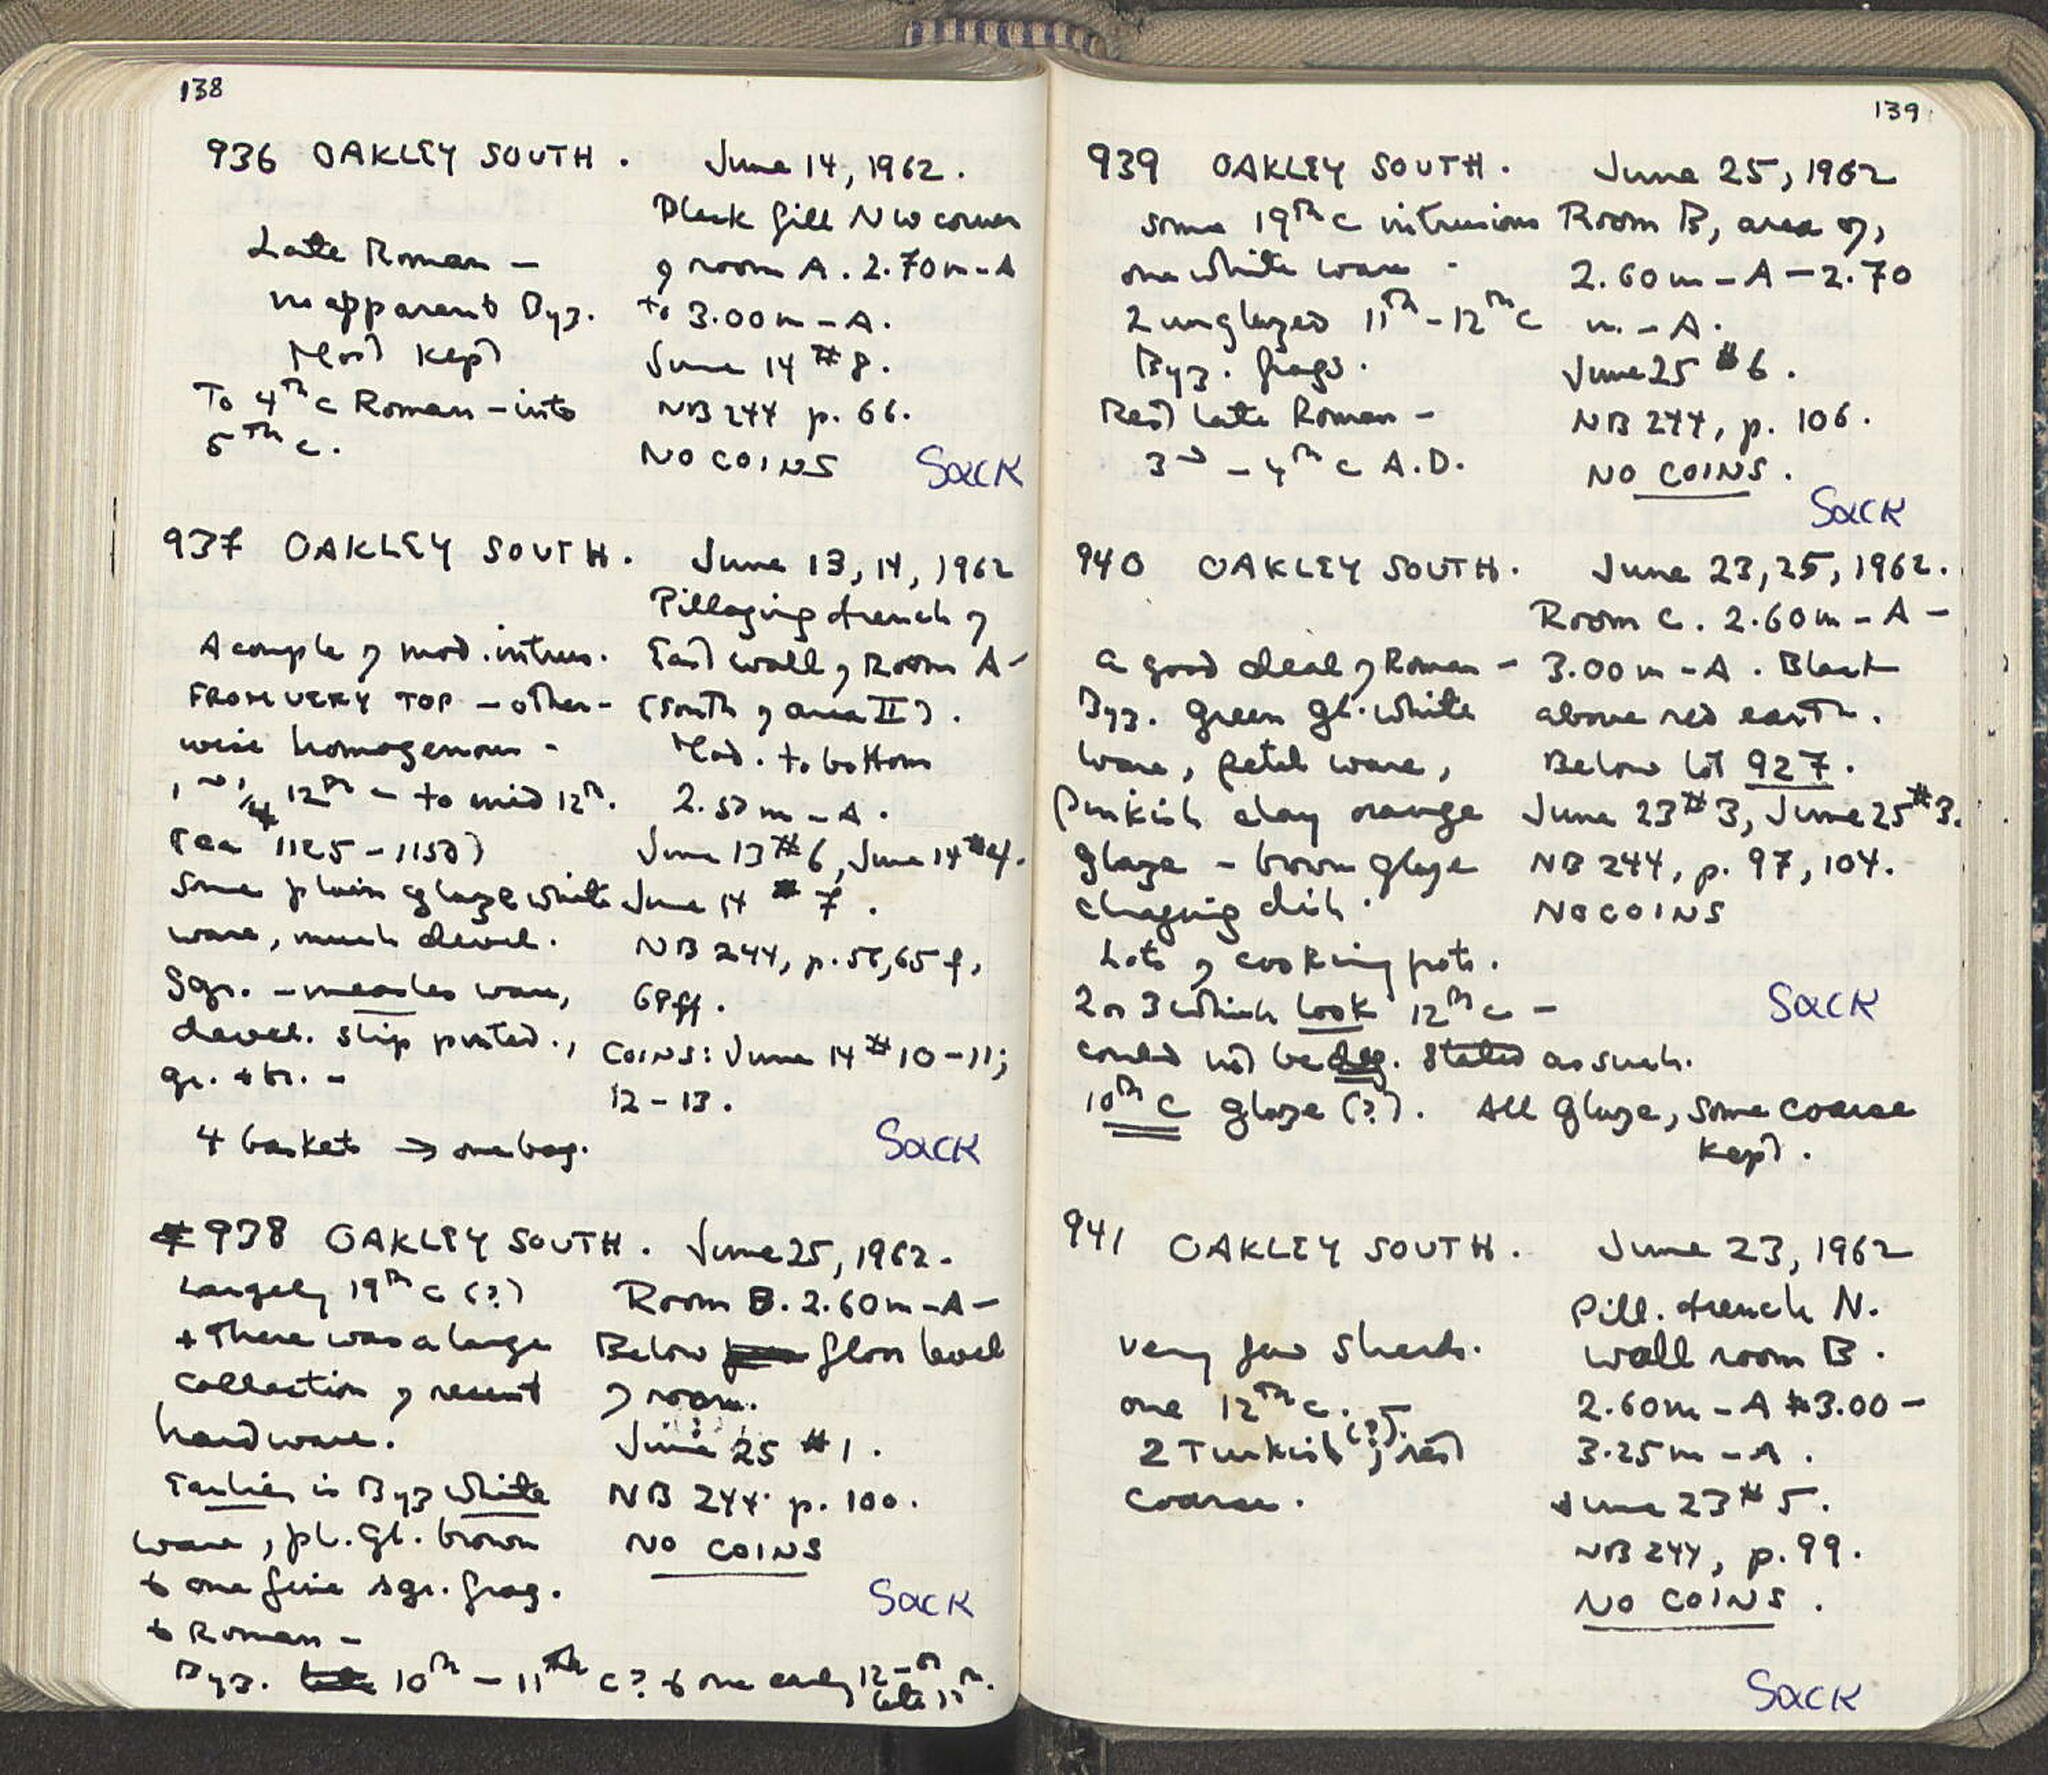 138
936 OAKLEY SOUTH. June 14, 1962.
Late Roman –
no apparent Byz.
Most kept
To 4th c Roman – into
5th c.
Black fill NW corner
of room A. 2.70m – A
to 3.00m – A.
June 14 #8.
NB 244 p. 66.
NO COINS
Sack
937 OAKLEY SOUTH. June 13, 14, 1962
A couple of mod. intrus.
FROM VERY TOP – other-
wise homogenous –
12th – to mid 12th.
1125 – 1150)
Some plain glaze white
ware, much devel.
Sgr. – measles ware,
devel. slip painted.,
gr. + br. –
4 baskets → one bag.
Pillaging trench of
East wall of Room A –
(South of area II).
Mod. to bottom
2.50m – A.
June 13 #6, June 14 #4.
June 14 #7.
NB 244, p. 56, 65 f,
68ff.
COINS: June 14 #10 – 11;
12 – 13.
Sack
938 OAKLEY SOUTH. June 25, 1962.
Largely 19th c (?)
+ There was a large
collection of recent
hardware.
Earlier is Byz white
ware, pl. gl. brown
& one fine sgr. frag.
& Roman –
Byz. 10th – 11th c? & one early 12th
late 11th.
Room B. 2.60m – A –
Below floor level
of room.
June 25 #1.
NB 244 p. 100.
NO COINS
Sack
139
939 OAKLEY SOUTH. June 25, 1962
some 19th c intrusions
one white ware –
2 unglazed 11th – 12th c
Byz. frags.
Rest Late Roman –
3rd – 4th c A.D.
Room B, area of,
2.60m – A – 2.70
m. – A.
June 25 #6.
NB 244, p. 106.
NO COINS.
Sack
940 OAKLEY SOUTH. June 23, 25, 1962.
a good deal of Roman –
Byz. green gl. white
ware, petal ware,
Pinkish clay orange
glaze – brown glaze
chafing dish.
Lots of cooking pots.
2 or 3 which look 12th c –
could not be deg. stated as such.
10th C glaze (?). All glaze, some coarse
kept.
Room C. 2.60m – A –
3.00m – A. Black
above red earth.
Below lot 927.
June 23 #3, June 25 #3.
NB 244, p. 97, 104.
NO COINS
Sack
941 OAKLEY SOUTH. June 23, 1962
very few sherds.
one 12th c.
2 Turkish (?); rest
coarse.
Pill. trench N.
wall room B.
2.60m – A 3.00 –
3.25m – A.
June 23 #5.
NB 244, p. 99.
NO COINS.
Sack